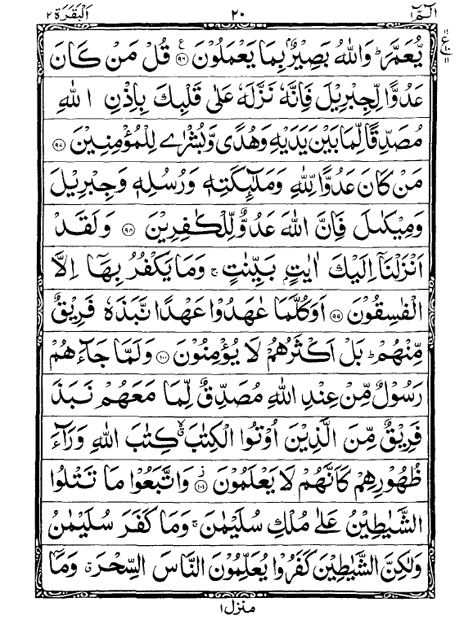 الٓمّٓ ١ ٢٠ اَلْبَقَرَة ٢
يُّعَمَّرَؕ وَاللّٰهُ بَصِيْرٌۢ بِمَا يَعْمَلُوْنَ ﴿٩٦﴾ قُلْ مَنْ كَانَ
عَدُوًّا لِّجِبْرِيْلَ فَاِنَّهٗ نَزَّلَهٗ عَلٰى قَلْبِكَ بِاِذْنِ اللّٰهِ
مُصَدِّقًا لِّمَا بَيْنَ يَدَيْهِ وَهُدًى وَّبُشْرٰى لِلْمُؤْمِنِيْنَ ﴿٩٧﴾
مَنْ كَانَ عَدُوًّا لِّلّٰهِ وَمَلٰٓئِكَتِهٖ وَرُسُلِهٖ وَجِبْرِيْلَ
وَمِيْكٰىلَ فَاِنَّ اللّٰهَ عَدُوٌّ لِّلْكٰفِرِيْنَ ﴿٩٨﴾ وَلَقَدْ
اَنْزَلْنَاۤ اِلَيْكَ اٰيٰتٍۭ بَيِّنٰتٍۚ وَمَا يَكْفُرُ بِهَاۤ اِلَّا
الْفٰسِقُوْنَ ﴿٩٩﴾ اَوَكُلَّمَا عٰهَدُوْا عَهْدًا نَّبَذَهٗ فَرِيْقٌ
مِّنْهُمْؕ بَلْ اَكْثَرُهُمْ لَا يُؤْمِنُوْنَ ﴿١٠٠﴾ وَلَمَّا جَآءَهُمْ
رَسُوْلٌ مِّنْ عِنْدِ اللّٰهِ مُصَدِّقٌ لِّمَا مَعَهُمْ نَبَذَ
فَرِيْقٌ مِّنَ الَّذِيْنَ اُوْتُوا الْكِتٰبَۙ كِتٰبَ اللّٰهِ وَرَآءَ
ظُهُوْرِهِمْ كَاَنَّهُمْ لَا يَعْلَمُوْنَ ﴿١٠١﴾ وَاتَّبَعُوْا مَا تَتْلُوا
الشَّيٰطِيْنُ عَلٰى مُلْكِ سُلَيْمٰنَۚ وَمَا كَفَرَ سُلَيْمٰنُ
وَلٰكِنَّ الشَّيٰطِيْنَ كَفَرُوْا يُعَلِّمُوْنَ النَّاسَ السِّحْرَۗ وَمَاۤ
منزل ١